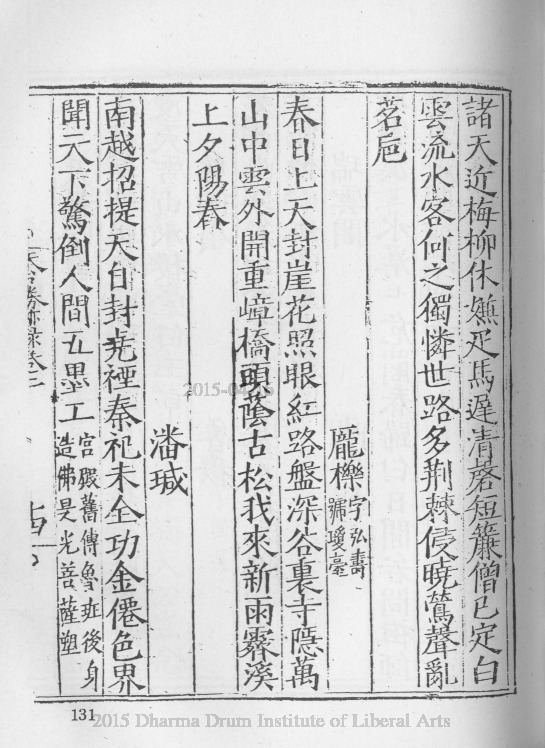 諸天近梅柳休嫌疋馬遲清磬短簾僧已定白
雲流水客何之獨憐世路多荆棘侵曉鶯聲亂
茗巵
龎櫟字弘壽
號瓊臺
春日上天封崖花照眼紅路盤深谷裏寺隱萬
山中雲外開重嶂橋頭蔭古松我來新雨霽溪
上夕陽春
潘珹
南越招提天台封堯禋秦祀未全功金僊色界
聞天下驚倒人間五墨工宫殿舊傳魯班後身
造佛是光菩薩塑
天台勝蹟錄卷之二
十四
131
2015 Dharma Drum Institute of Liberal Arts